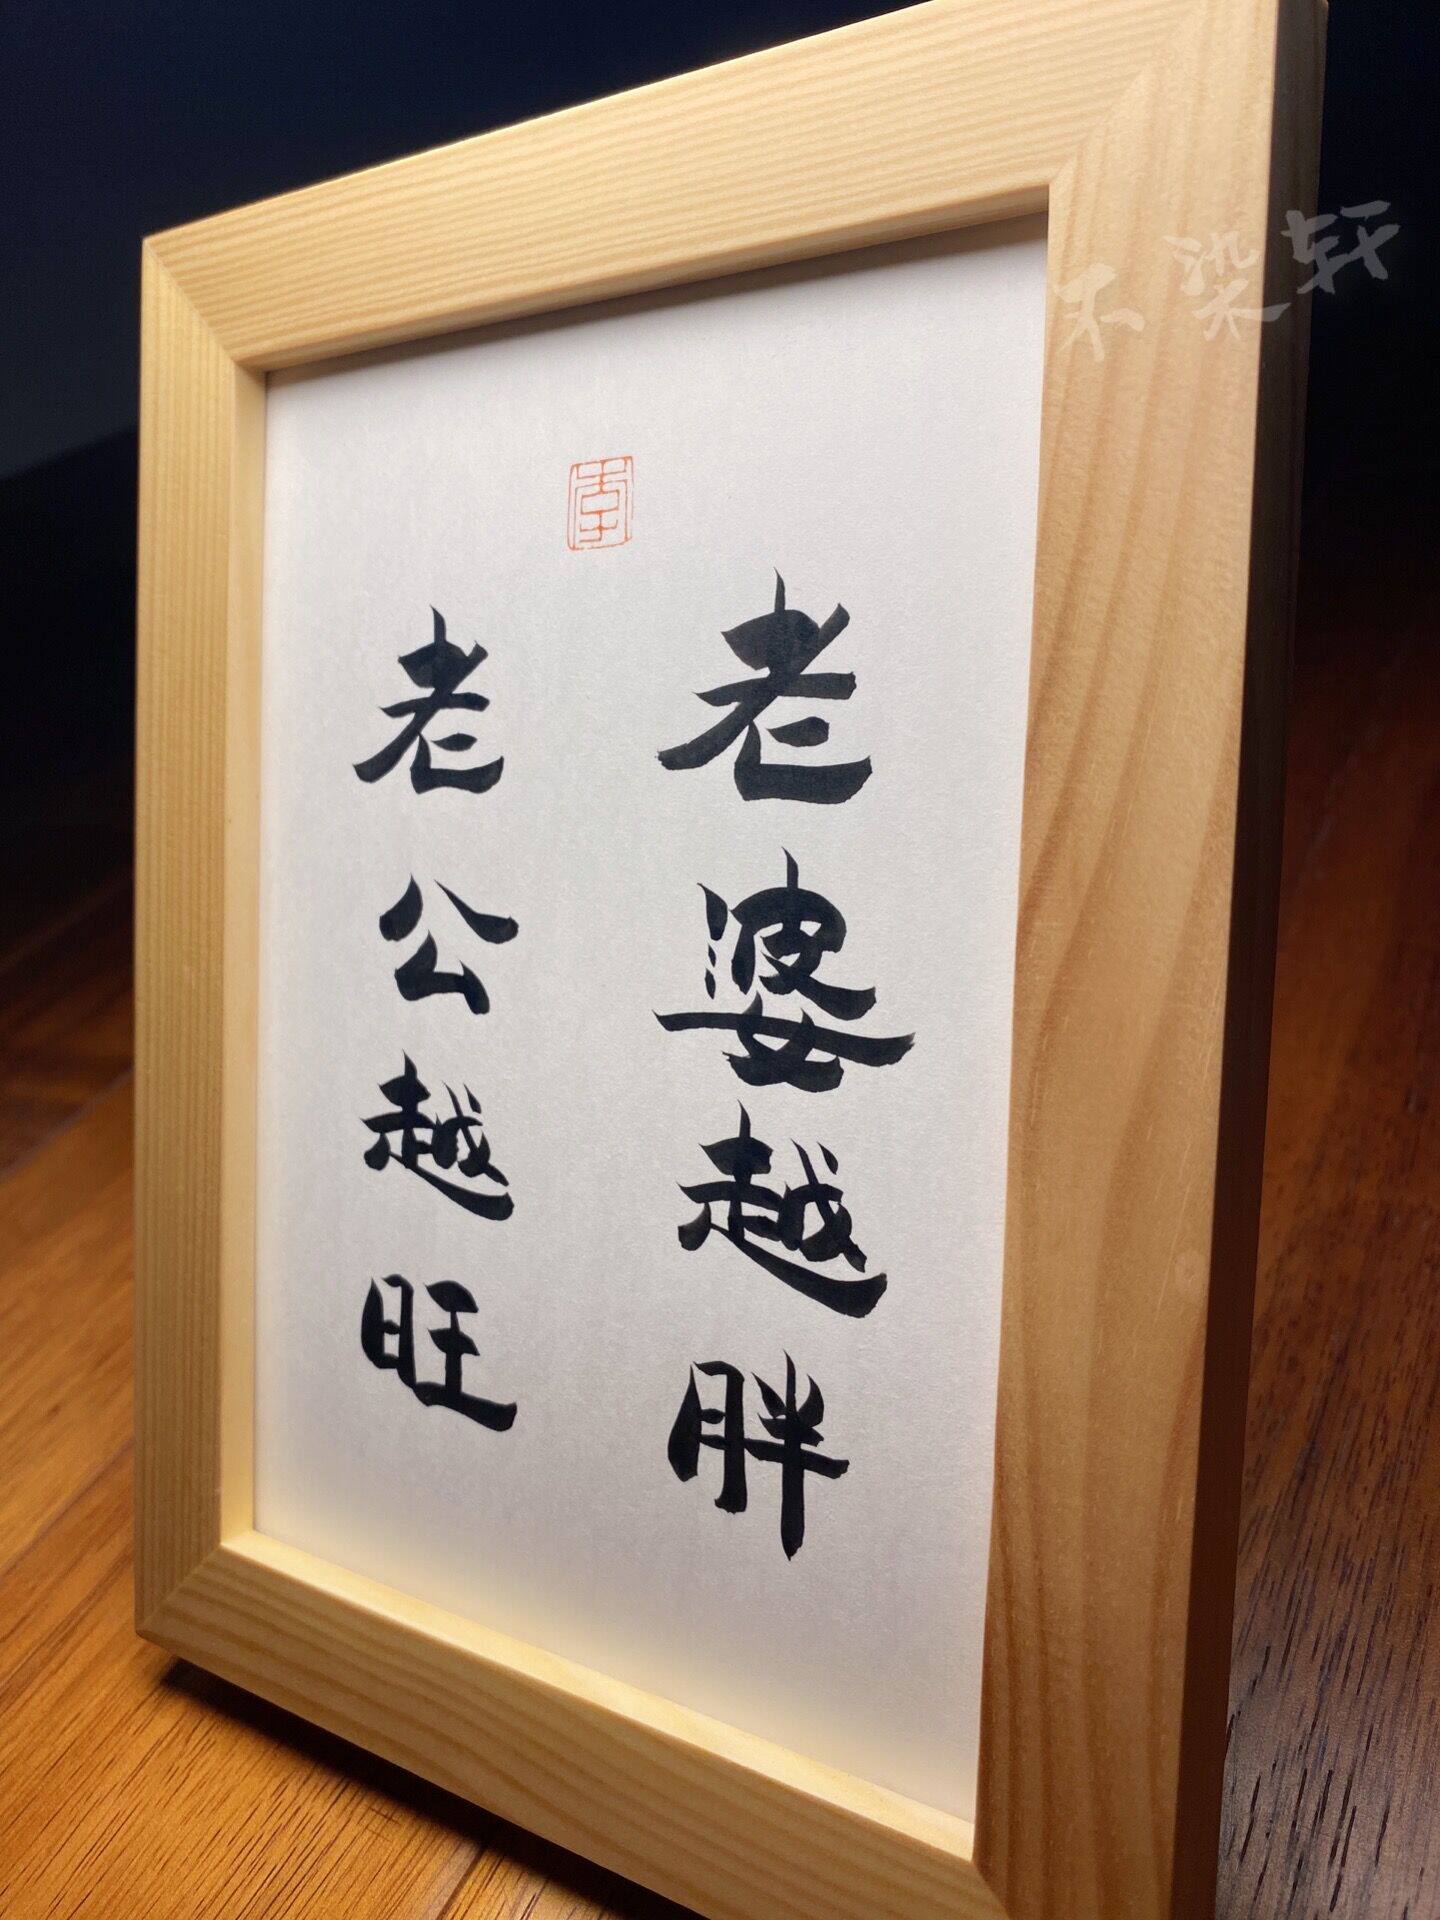 老婆越胖
老公越旺
不染轩